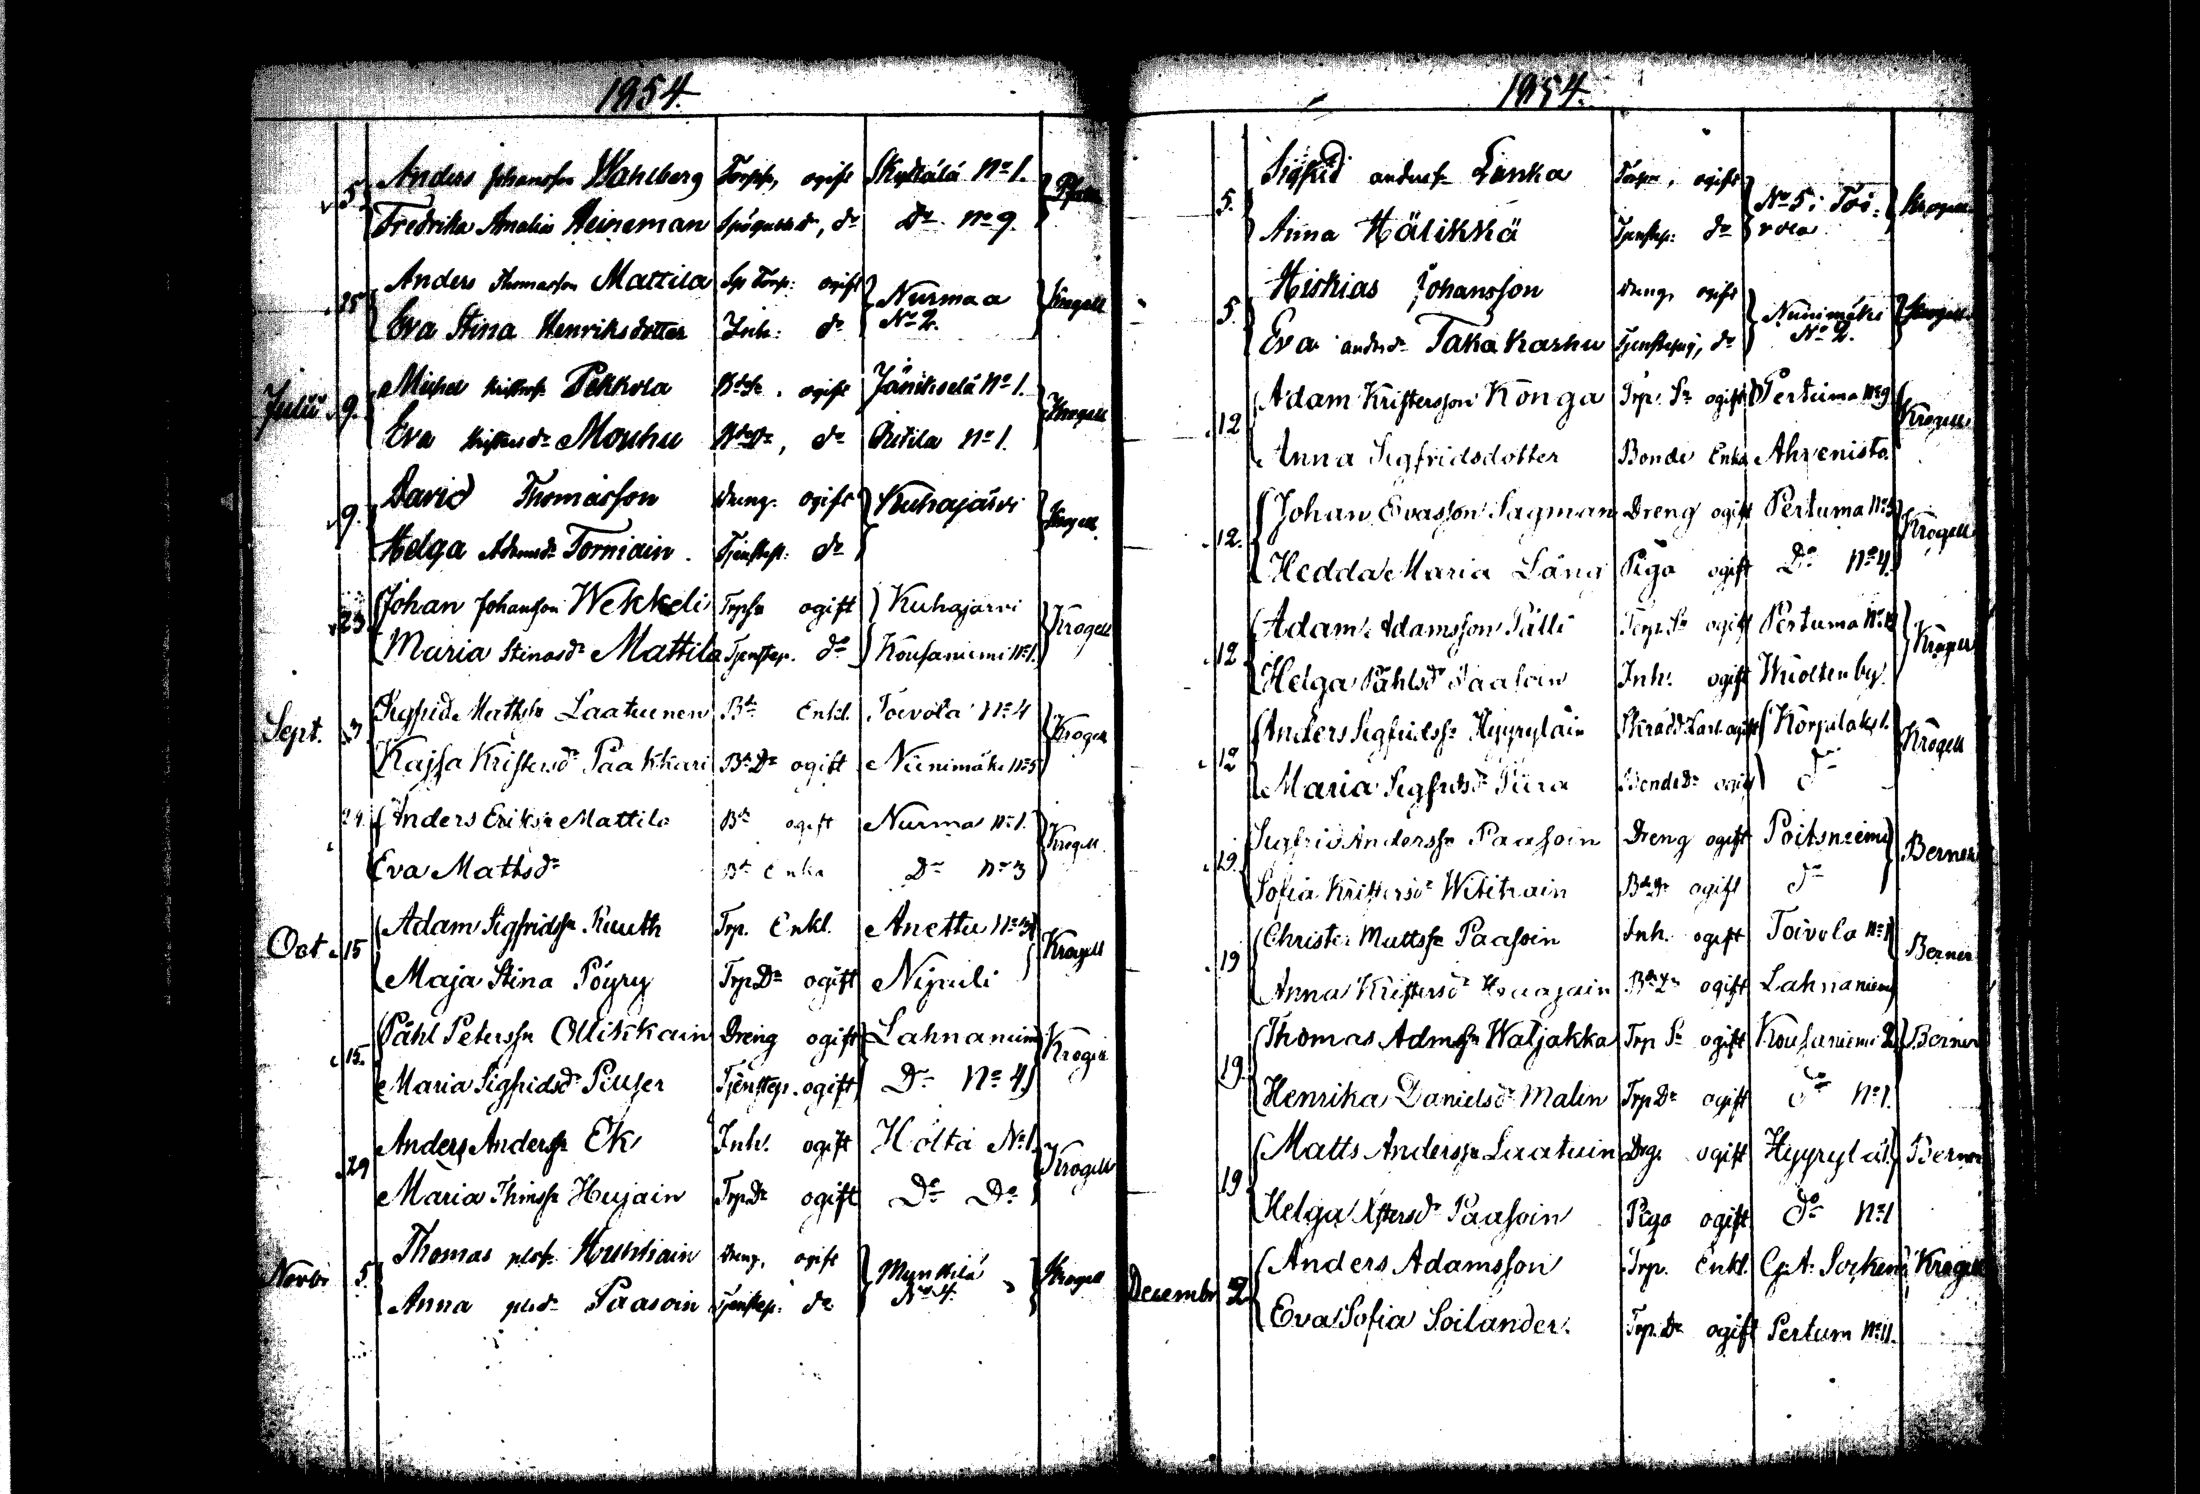 1854.
5. Anders Johansson Wahlberg Torpp, ogift Skyttälä No 1.
Fredrika Amalia Heineman do Do No 9.
25 Anders Thomasson Mattila Torp: ogift Nurmaa Krogell
Eva Stina Henriksdotter Inh: do No 2.
Julii 9. Michel Pekkola ogift Jänikselä No 1. Krogell
Eva Mouhu do No 1.
9. David Thomasson Dreng. ogift Kuhajärvi Krogell
Helga Adamsdr Torniain. Tjenstep: do
23 Johan Johansson Wekkeli ogift Kuhajarvi Krogell
Maria Stinasdr Mattila Tjenstep. do Koufaniemi No 1.
Sept. 3 Sigfrid Mattsn Laatunen Bde Enkl. Toivola No 4 Krogell
Kajsa Kristersdr Paakkari Bd Dr ogift Niinimäki No 5
24. Anders Eriksn Mattila Bde ogift Nurmaa No 1. Krogell
Eva Mattsdr Bde Enka Do No 3
Oct. 15 Adam Sigfridssn Ruuth Trp. Enkl. Anettu No 3 Krogell
Maja Stina Pöyry Trp Dr ogift Nipuli
15. Påhl Peterssn Ollikkain Dreng ogift Lahnaniem Krogell
Maria Sigfridsdr Tjenstep. ogift Do No 4.
29 Anders Anderssn Ek Inh. ogift Höltä No 1. Krogell
Maria Hujain Trp Dr ogift Do Do
Novbr 5. Thomas Huhtiain Dreng, ogift Mynttilä Krogell
Anna Paasoin Tjenstep: do No 4.
1854.
5. Sigfrid Anderssn Linka ogift No 5 i Toi- Krogell
Anna Hälikkä Tjenstep: do vola
5. Hiskias Johansson Dreng, ogift Niinimäki Krogell
Eva Andersdr Takakarhu Tjenstepig, do No 2.
12 Adam Kristersson Konga Trp. Sn ogift Pertuma No 9 Krogell
Anna Sigfridsdotter Bonde Enka Ahvenisto.
12. Johan Evasson Sagman Dreng ogift Pertuma No 3 Krogell
Hedda Maria Läng Piga ogift Do No 4.
12 Adam Adamsson Pätti Torp Sn ogift Pertuma Krogell
Helga Påhlsdr Paasoin Inh. ogift by.
12 Anders Sigfridssn Hyyryläin ogift Krogell
Maria Sigfridsdr Piira Bonde Dr ogift do
19. Sigfrid Anderssn Paasoin Dreng ogift Poitsniemi Berner
Sofia Kristersdr Witikain Bde Dr ogift do
19 Christer Mattssn Paasoin Inh. ogift Toivola No 1 Berner
Anna Kristersdr ogift Lahnaniemi
19. Thomas Admssn Waljakka Trp Sn ogift Koufaniemi 2 Berner
Henrika Danielsdr Malin Trp Dr ogift do No 1.
19 Matts Anderssn Laatuin Drg. ogift Hyyryläi Berner
Helga Xstersdr Paasoin Piga ogift do No 1
Decembr 2 Anders Adamsson Trp. Enkl. G.A. Socken Krogell
Eva Sofia Soilander. Trp. Dr ogift Pertum No 11.